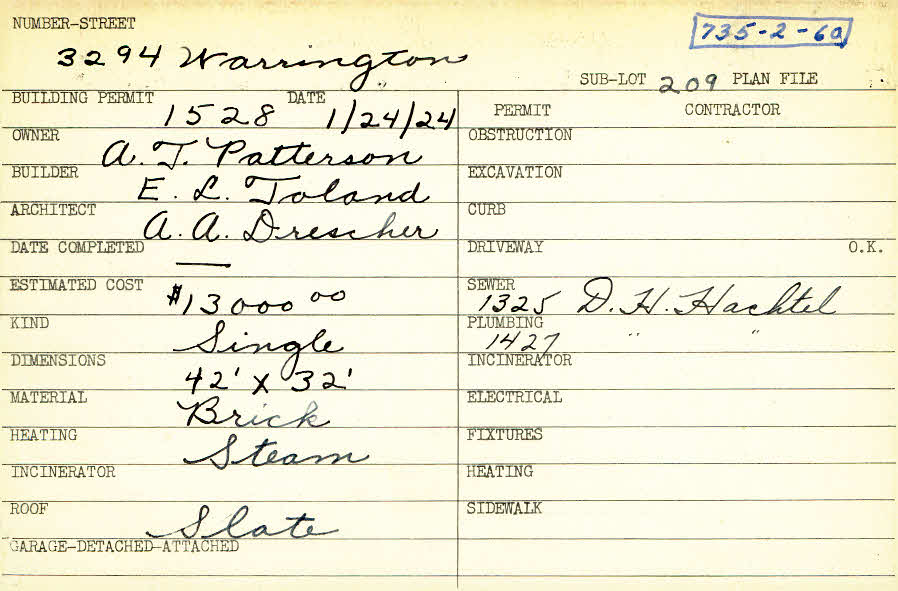 NUMBER-STREET
735-2-60
3294 Warrington
SUB-LOT 209 PLAN FILE
BUILDING PERMIT 1528 DATE 1/24/24
PERMIT CONTRACTOR
OWNER A. T. Patterson
OBSTRUCTION
BUILDER E. L. Toland
EXCAVATION
ARCHITECT A. A. Drescher
CURB
DATE COMPLETED —
DRIVEWAY O.K.
ESTIMATED COST $13000 00
SEWER 1325 D. H. Hachtel
KIND Single
PLUMBING 1427 " "
DIMENSIONS 42' x 32'
INCINERATOR
MATERIAL Brick
ELECTRICAL
HEATING Steam
FIXTURES
INCINERATOR
HEATING
ROOF Slate
SIDEWALK
GARAGE-DETACHED-ATTACHED